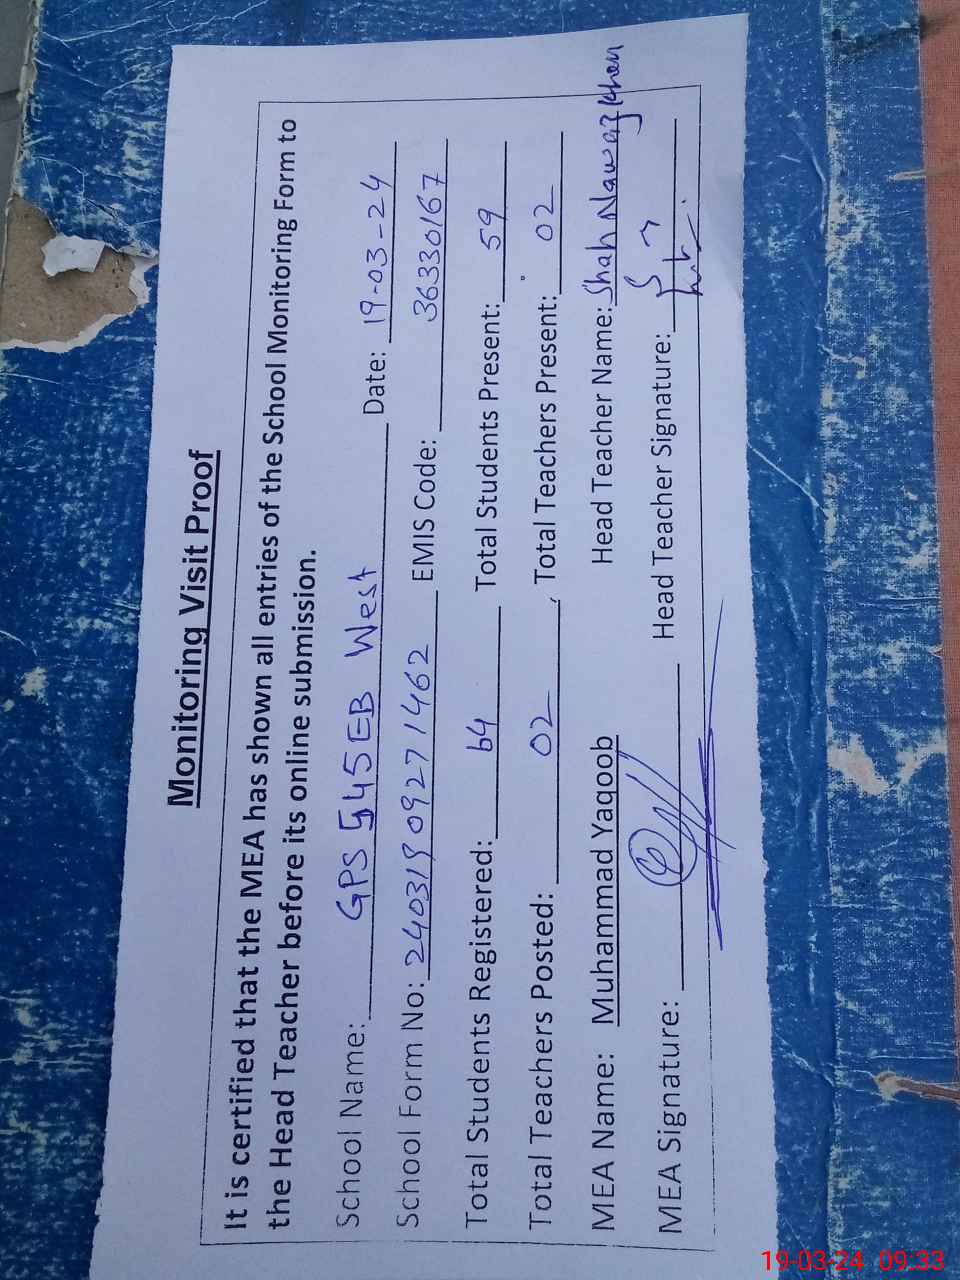 Monitoring Visit Proof
It is certified that the MEA has shown all entries of the School Monitoring Form to
the Head Teacher before its online submission.
School Name: GPS 545EB West Date: 19-03-24
School Form No: 240319092771462 EMIS Code: 36330167
Total Students Registered: 64 Total Students Present: 59
Total Teachers Posted: 02, Total Teachers Present: 02
MEA Name: Muhammad Yaqoob Head Teacher Name: Shah Nawaz Khan
MEA Signature: Head Teacher Signature:
19-03-24 09:33